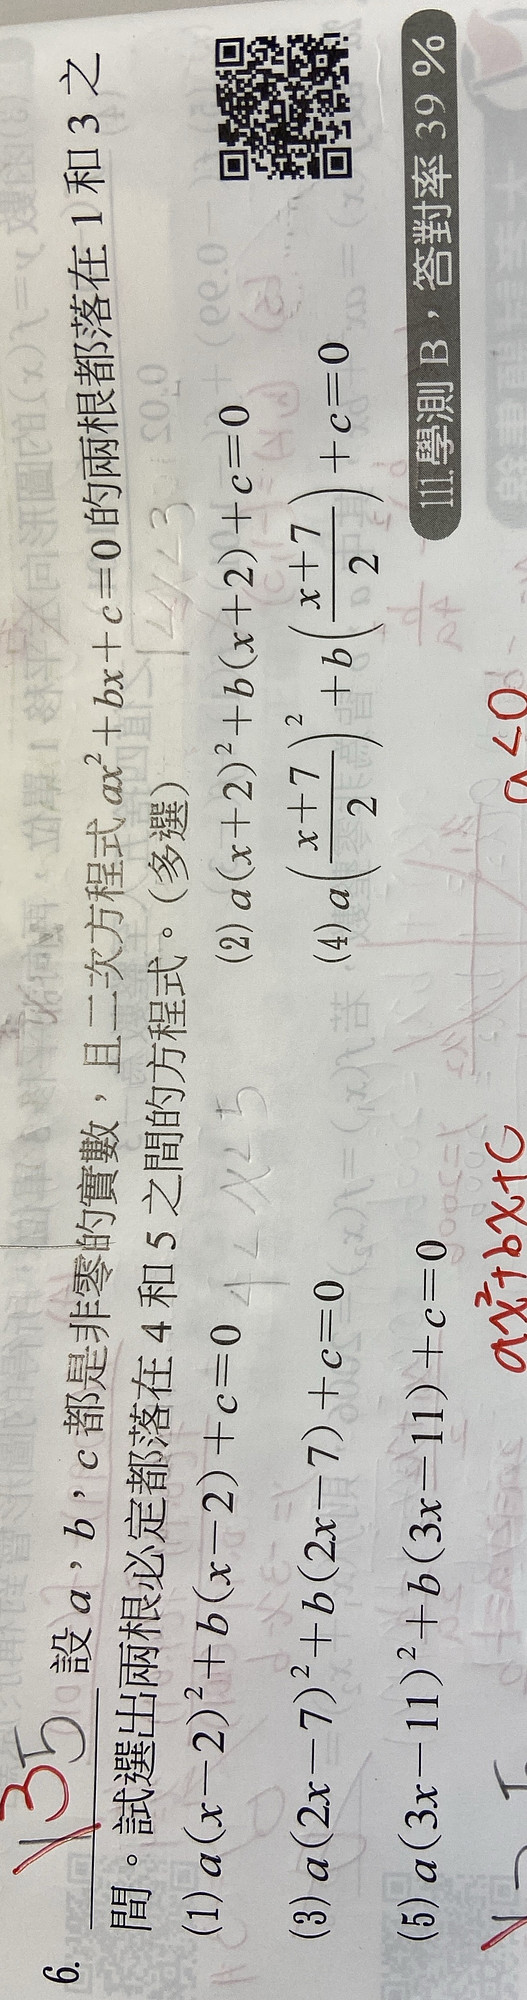 135
6. 設 a，b，c 都是非零的實數，且二次方程式 ax²+bx+c=0 的兩根都落在 1 和 3 之
間。試選出兩根必定都落在 4 和 5 之間的方程式。（多選）
1<x<3
(1) a(x−2)²+b(x−2)+c=0 (2) a(x+2)²+b(x+2)+c=0
4<x<5
(3) a(2x−7)²+b(2x−7)+c=0 (4) a((x+7)/2)²+b((x+7)/2)+c=0
(5) a(3x−11)²+b(3x−11)+c=0
111.學測 B，答對率 39 %
ax²+bx+c
a<0